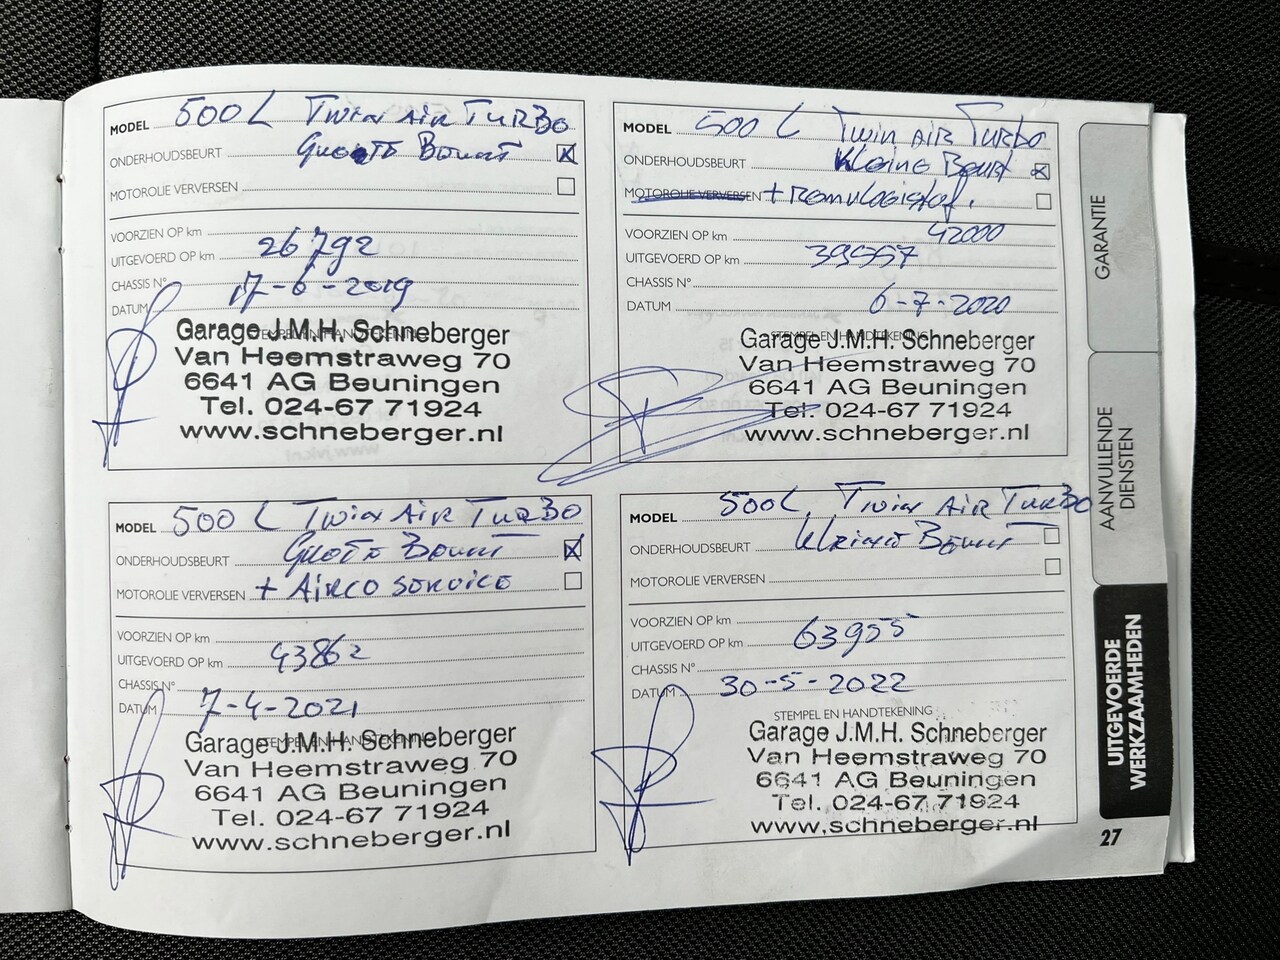 MODEL 500 L Twin Air Turbo
ONDERHOUDSBEURT Groote Beurt
MOTOROLIE VERVERSEN
VOORZIEN OP km
UITGEVOERD OP km 26792
CHASSIS N°
DATUM 17-6-2019
STEMPEL EN HANDTEKENING
Garage J.M.H. Schneberger
Van Heemstraweg 70
6641 AG Beuningen
Tel. 024-67 71924
www.schneberger.nl
MODEL 500 L Twin Air Turbo
ONDERHOUDSBEURT Kleine Beurt
MOTOROLIE VERVERSEN + Remvloeistof.
VOORZIEN OP km 42000
UITGEVOERD OP km 39557
CHASSIS N°
DATUM 6-7-2020
STEMPEL EN HANDTEKENING
Garage J.M.H. Schneberger
Van Heemstraweg 70
6641 AG Beuningen
Tel. 024-67 71924
www.schneberger.nl
MODEL 500 L Twin Air Turbo
ONDERHOUDSBEURT Groote Beurt
MOTOROLIE VERVERSEN + Airco service
VOORZIEN OP km
UITGEVOERD OP km 43862
CHASSIS N°
DATUM 7-4-2021
STEMPEL EN HANDTEKENING
Garage J.M.H. Schneberger
Van Heemstraweg 70
6641 AG Beuningen
Tel. 024-67 71924
www.schneberger.nl
MODEL 500L Twin Air Turbo
ONDERHOUDSBEURT Kleine Beurt
MOTOROLIE VERVERSEN
VOORZIEN OP km
UITGEVOERD OP km 63955
CHASSIS N°
DATUM 30-5-2022
STEMPEL EN HANDTEKENING
Garage J.M.H. Schneberger
Van Heemstraweg 70
6641 AG Beuningen
Tel. 024-67 71924
www.schneberger.nl
GARANTIE
AANVULLENDE
DIENSTEN
UITGEVOERDE
WERKZAAMHEDEN
27